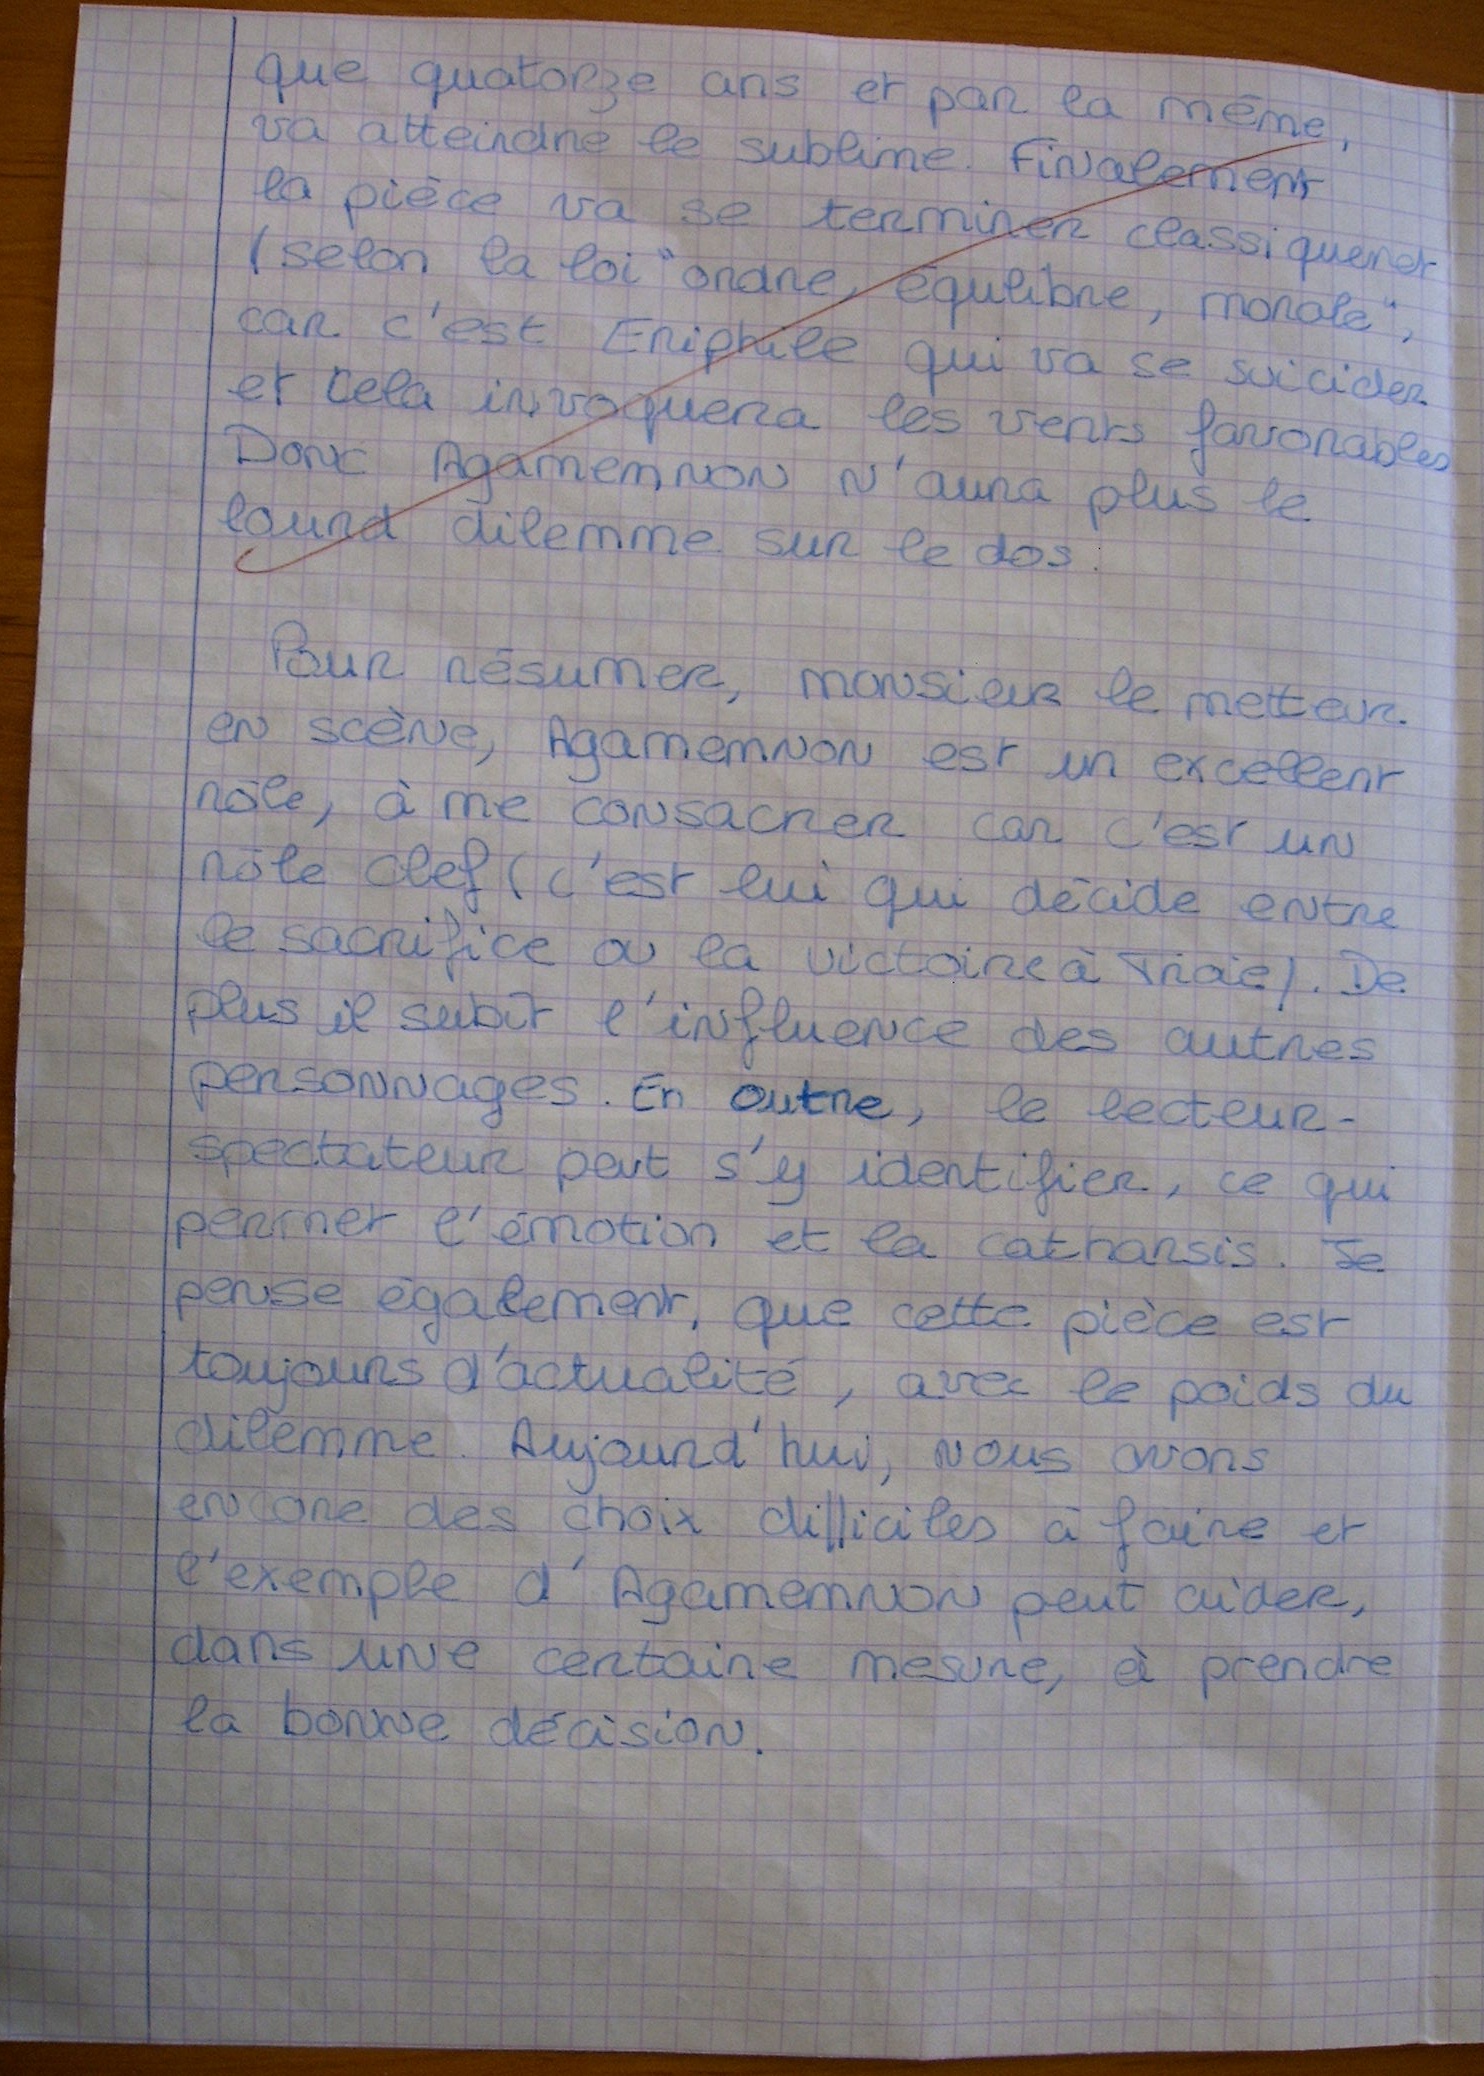 que quatorze ans et par la même,
va atteindre le sublime. Finalement
la pièce va se terminer classiquemet
(selon la loi "ordre, équilibre, morale",
car c'est Eriphile qui va se suicider
et cela invoquera les vents favorables
Donc Agamemnon n'aura plus le
lourd dilemme sur le dos.
Pour résumer, monsieur le metteur
en scène, Agamemnon est un excellent
rôle, à me consacrer car c'est un
rôle clef (c'est lui qui décide entre
le sacrifice ou la victoire à Troie). De
plus il subît l'influence des autres
personnages. En outre, le lecteur-
spectateur peut s'y identifier, ce qui
permet l'émotion et la catharsis. Je
pense également, que cette pièce est
toujours d'actualité, avec le poids du
dilemme. Aujourd'hui, nous avons
encore des choix difficiles à faire et
l'exemple d'Agamemnon peut aider,
dans une certaine mesure, à prendre
la bonne décision.